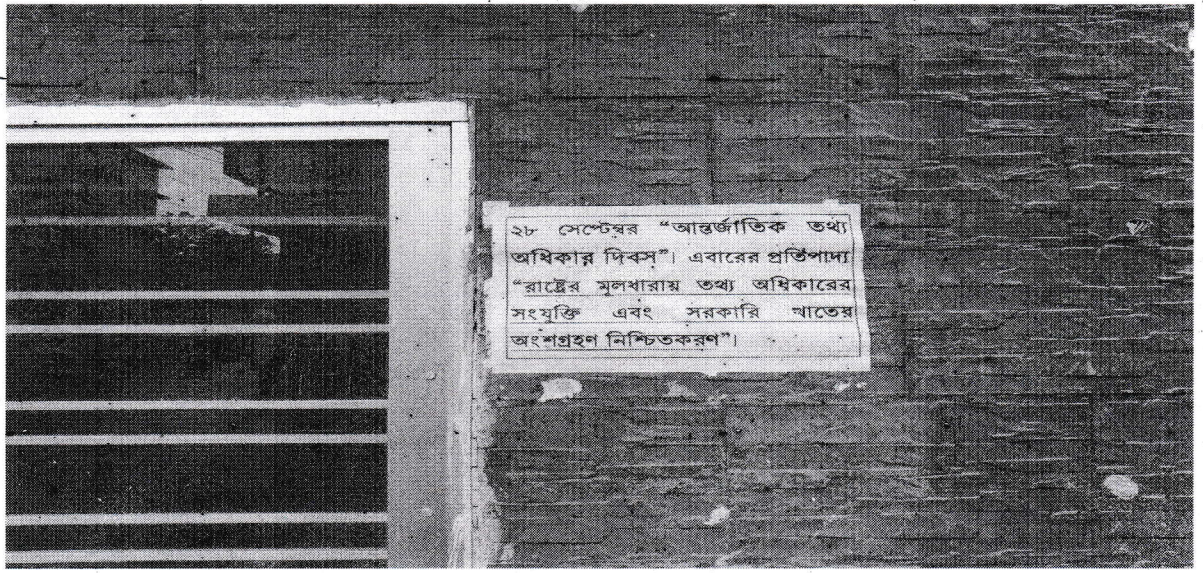 ২৮ সেপ্টেম্বর “আন্তর্জাতিক তথ্য
অধিকার দিবস”। এবারের প্রতিপাদ্য
“রাষ্ট্রের মূলধারায় তথ্য অধিকারের
সংযুক্তি এবং সরকারি খাতের
অংশগ্রহণ নিশ্চিতকরণ”।